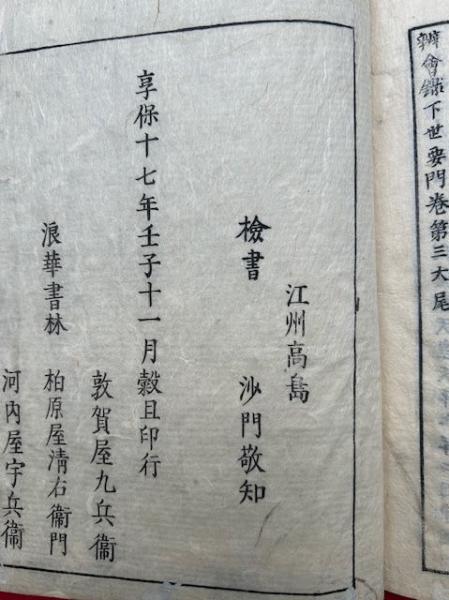 下世要門卷第三大尾
江州高島
檢書 沙門敬知
享保十七年壬子十一月穀旦印行
敦賀屋九兵衞
浪華書林 柏原屋清右衞門
河內屋宇兵衞